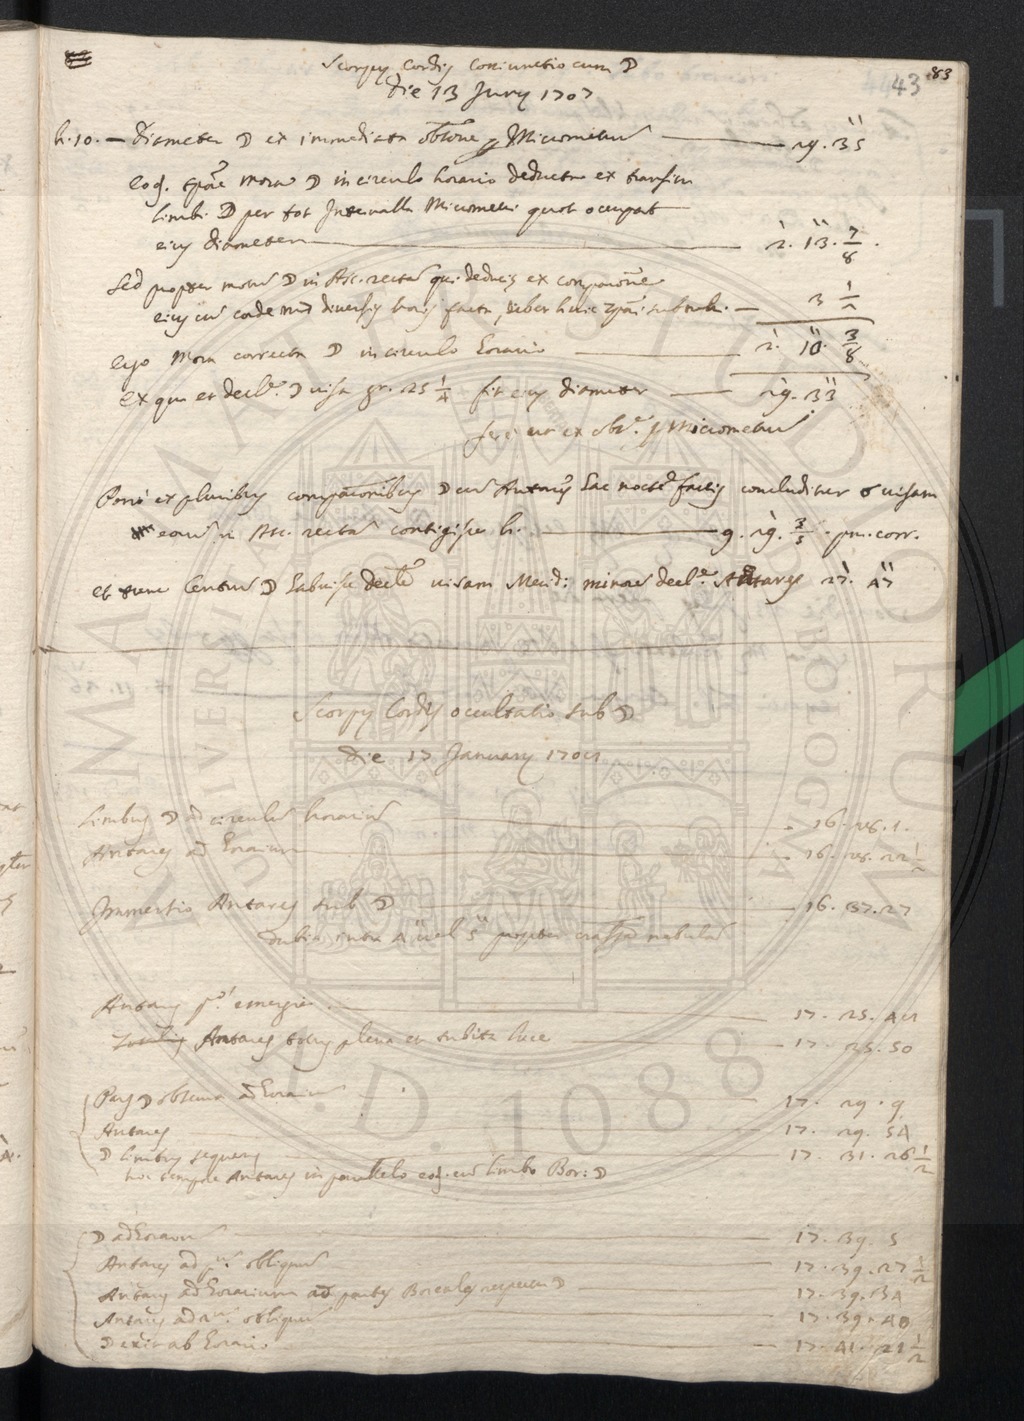 43 83
Scorpij Cordis coniunctio cum ☽
Die 13 Junij 1707
h. 10. — Diameter ☽ ex immediata obseruatione Micrometri — 29. 35
eod. tempore Mora ☽ in circulo horario deducta ex transitu
limbi ☽ per tot Interualla Micrometri quot occupat
eius diameter — 2. 13. 7/8.
Sed propter motum ☽ in Asc. recta qui deducitur ex comparatione
eius cum corde ♏ diuersis horis facta, debet huic subtrahi — 3 1/2
Ergo Mora correcta ☽ in circulo horario — 2. 10. 3/8
ex qua et decl. ☽ uisa gr. 25 1/4 fit eius diameter — 29. 33
fere ut ex obs. Micrometri
Porro ex pluribus comparationibus ☽ cum Antares hac nocte factis concluditur ☌ uisam
eorum in Asc. recta contigisse h. — 9. 29. 3/5. pm. corr.
et tunc Centrum ☽ habuisse uisam Merid: minorem decl. Antares 27. 47
Scorpij Cordis occultatio sub ☽
Die 17 January
Limbus ☽ ad circulum horarium — 16. 26. 1.
Antares ad horarium — 16. 26. 22 1/2
Immersio Antares sub ☽ — 16. 37. 27
dubia intra 4" uel 5" propter nebulam
Antares emergit — 17. 25. 42
Antares totus plena et subita luce — 17. 25. 50
Pars ☽ obscura ad horarium — 17. 29. 9
Antares — 17. 29. 54
☽ limbus sequens — 17. 31. 26 1/2
hoc tempore Antares in parallelo cum limbo Bor: ☽
☽ ad horarium — 17. 39. 5
Antares ad obliquum — 17. 39. 27 1/2
Antares ad horarium ad partes Boreales respectu ☽ — 17. 39. 34
Antares ad obliquum — 17. 39. 40
☽ exit ab horario — 17. 41. 21 1/2
ALMA MATER STUDIORUM
UNIVERSITÀ DI BOLOGNA
A.D. 1088